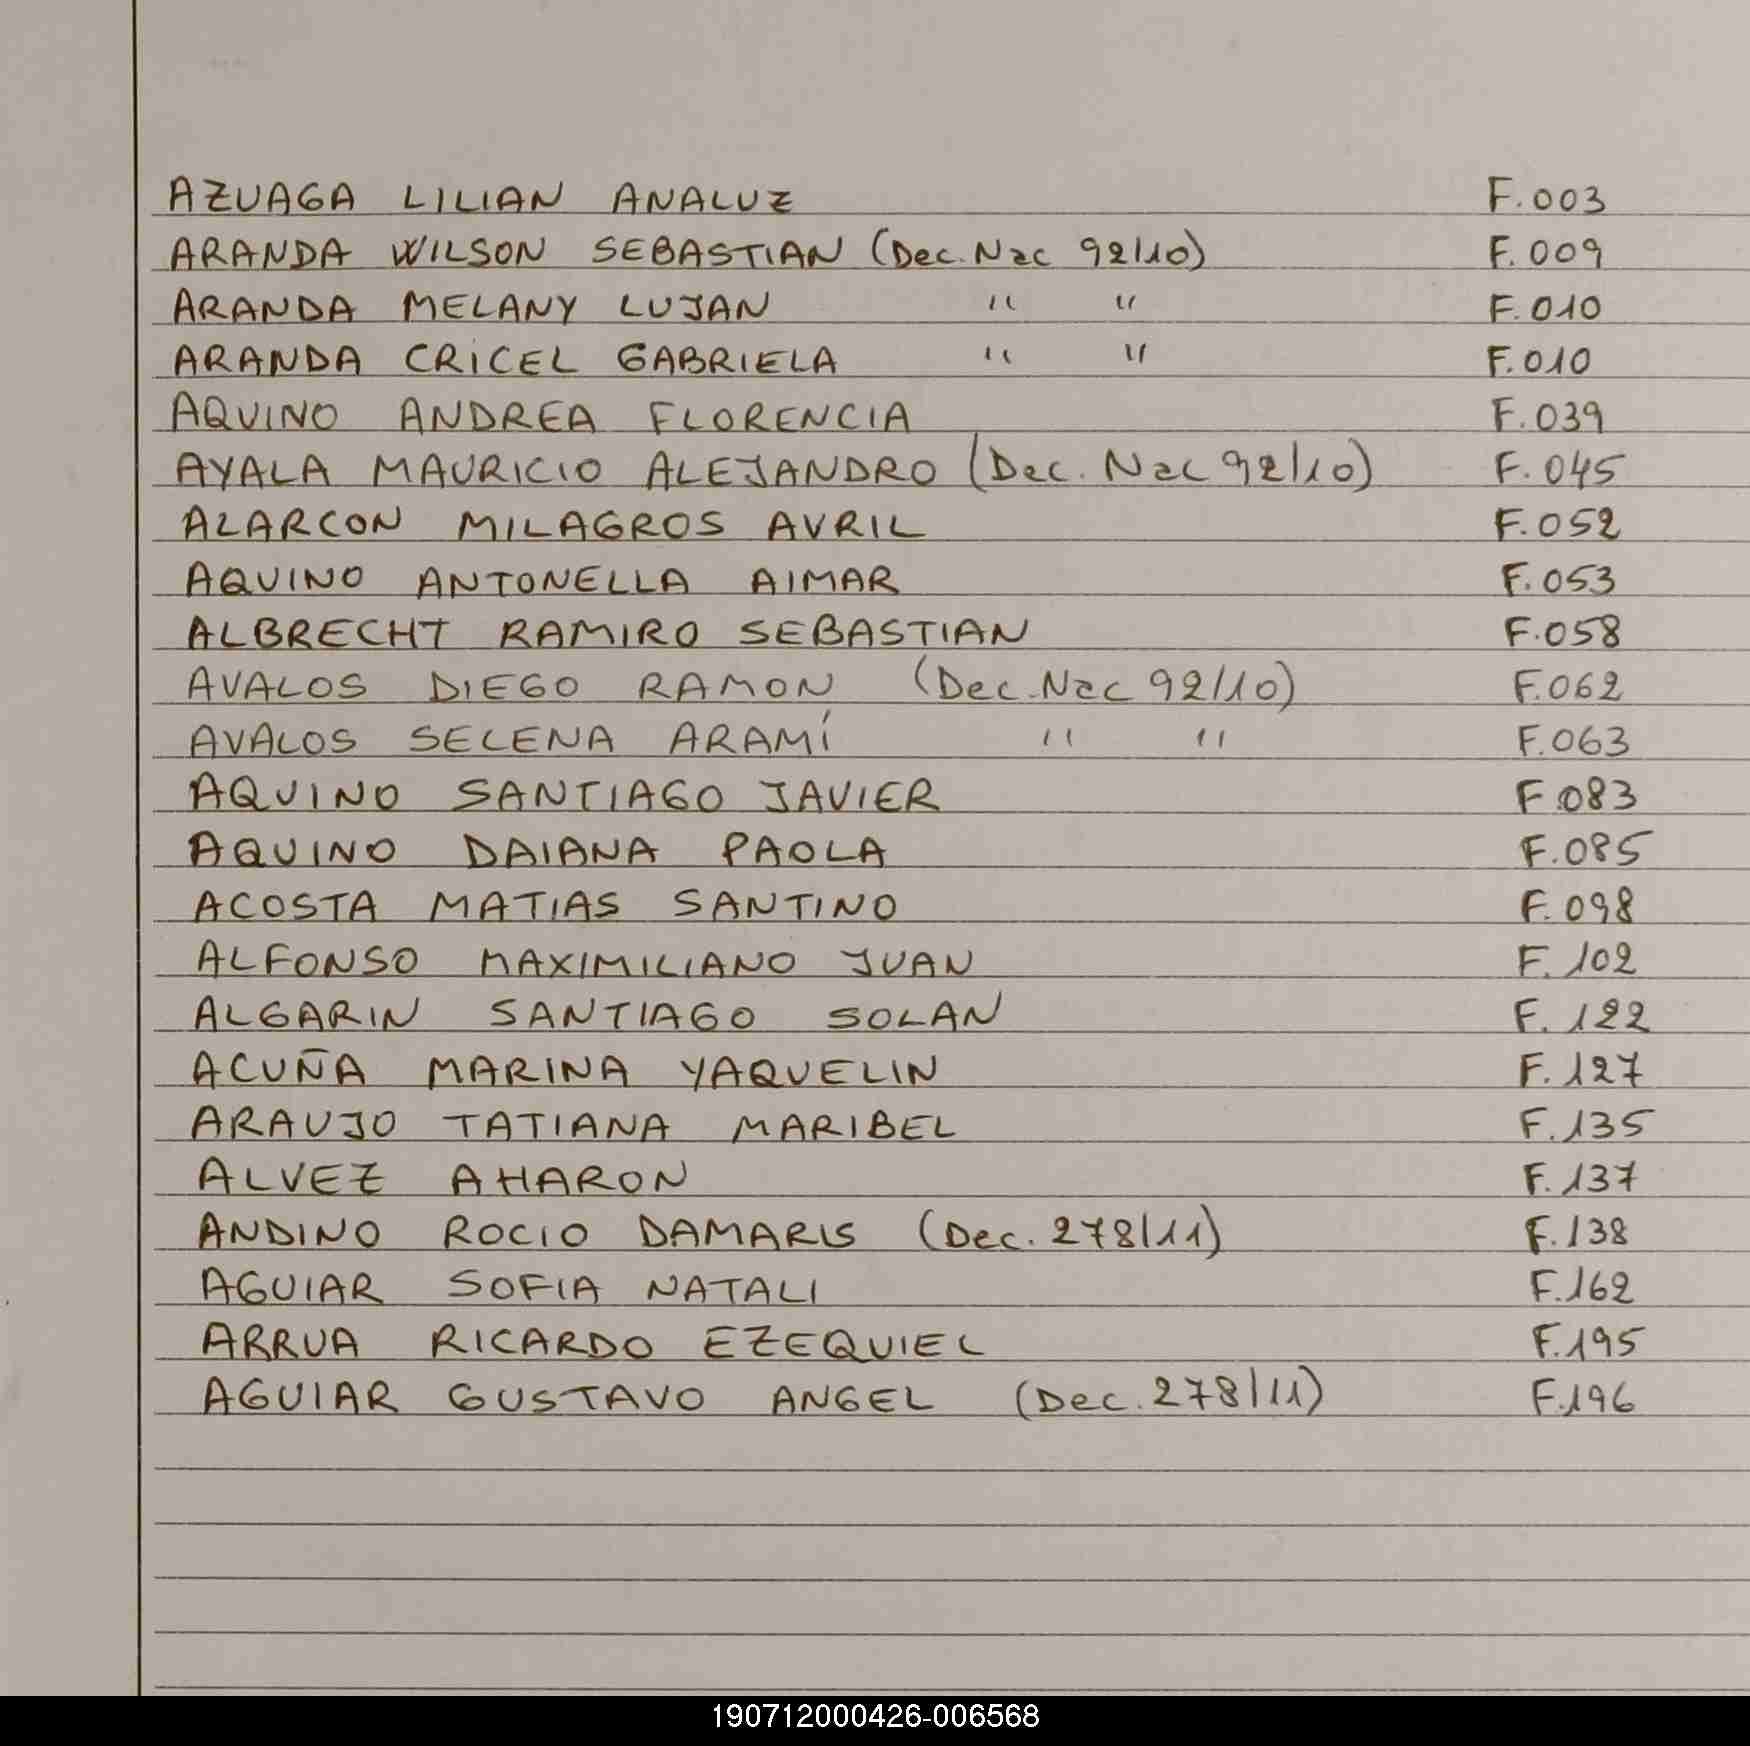 AZUAGA LILIAN ANALUZ F.003
ARANDA WILSON SEBASTIAN (Dec. Nac 92/10) F.009
ARANDA MELANY LUJAN " " F.010
ARANDA CRICEL GABRIELA " " F.010
AQUINO ANDREA FLORENCIA F.039
AYALA MAURICIO ALEJANDRO (Dec. Nac 92/10) F.045
ALARCON MILAGROS AVRIL F.052
AQUINO ANTONELLA AIMAR F.053
ALBRECHT RAMIRO SEBASTIAN F.058
AVALOS DIEGO RAMON (Dec. Nac 92/10) F.062
AVALOS SELENA ARAMÍ " " F.063
AQUINO SANTIAGO JAVIER F.083
AQUINO DAIANA PAOLA F.085
ACOSTA MATIAS SANTINO F.098
ALFONSO MAXIMILIANO JUAN F.102
ALGARIN SANTIAGO SOLAN F.122
ACUÑA MARINA YAQUELIN F.127
ARAUJO TATIANA MARIBEL F.135
ALVEZ AHARON F.137
ANDINO ROCIO DAMARIS (Dec. 278/11) F.138
AGUIAR SOFIA NATALI F.162
ARRUA RICARDO EZEQUIEL F.195
AGUIAR GUSTAVO ANGEL (Dec. 278/11) F.196
190712000426-006568